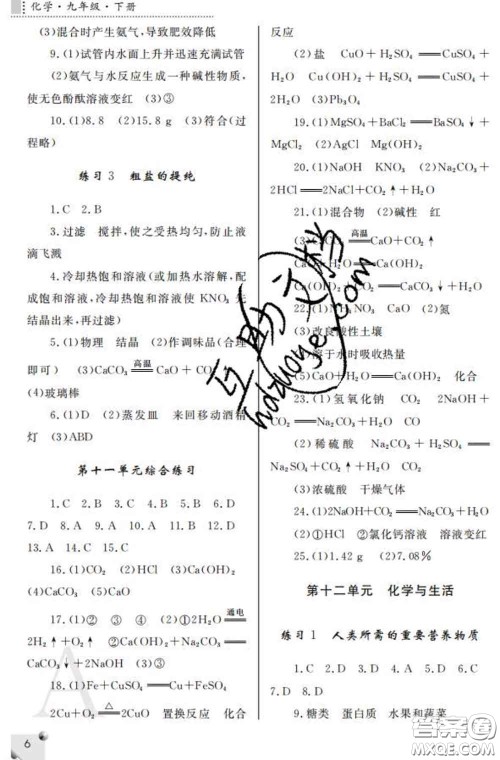 化学·九年级·下册
(3)混合时产生氨气,导致肥效降低
9.(1)试管内水面上升并迅速充满试管
(2)氨气与水反应生成一种碱性物质,
使无色酚酞溶液变红 (3)③
10.(1)8.8 (2)15.8 g (3)符合(过
程略)
练习3 粗盐的提纯
1.C 2.B
3.过滤 搅拌,使之受热均匀,防止液
滴飞溅
4.冷却热饱和溶液(或加热水溶解,配
成饱和溶液,冷却热饱和溶液使 KNO₃ 先
结晶出来,再过滤)
5.(1)物理 结晶 (2)作调味品(合理
即可) (3)CaCO₃ 高温 CaO + CO₂↑
(4)玻璃棒
6.(1)D (2)蒸发皿 来回移动酒精
灯 (3)ABD
第十一单元综合练习
1.C 2.B 3.C 4.B 5.B 6.D
7.D 8.A 9.A 10.A 11.D 12.D
13.A 14.C 15.C
16.(1)CO₂ (2)HCl (3)Ca(OH)₂
(4)CaCO₃ (5)CaO
17.(1)② ③ ④ (2)①2H₂O 通电
2H₂↑+O₂↑ ②Ca(OH)₂+Na₂CO₃
CaCO₃↓+2NaOH
18.(1)Fe+CuSO₄══Cu+FeSO₄
2Cu+O₂ △ 2CuO 置换反应 化合
6
反应
(2)盐 CuO+H₂SO₄══CuSO₄+
H₂O Cu(OH)₂+H₂SO₄══CuSO₄+
2H₂O (3)Pb₃O₄
19.(1)MgSO₄+BaCl₂══BaSO₄↓+
MgCl₂ (2)AgCl Mg(OH)₂
20.(1)NaOH KNO₃ (2)Na₂CO₃+
2HCl══2NaCl+CO₂↑+H₂O
21.(1)混合物 (2)碱性 红
高温 CaO+CO₂↑
H₂O══Ca(OH)₂
CaO (2)氮
(3)改良酸性土壤
(4)溶于水时吸收热量
(5)CaO+H₂O══Ca(OH)₂ 化合
23.(1)氢氧化钠 CO₂ 2NaOH+
CO₂══Na₂CO₃+H₂O
(2)稀硫酸 Na₂CO₃+H₂SO₄══
Na₂SO₄+CO₂↑+H₂O
(3)浓硫酸 干燥气体
24.(1)2NaOH+CO₂══Na₂CO₃+H₂O
(2)①HCl ②氯化钙溶液 溶液变红
25.(1)1.42 g (2)7.08%
第十二单元 化学与生活
练习1 人类所需的重要营养物质
1.C 2.D 3.D 4.C 5.D 6.C
7.D 8.D
9.糖类 蛋白质 水果和蔬菜
hdzuoye.com
答案圈
MXQE.COM